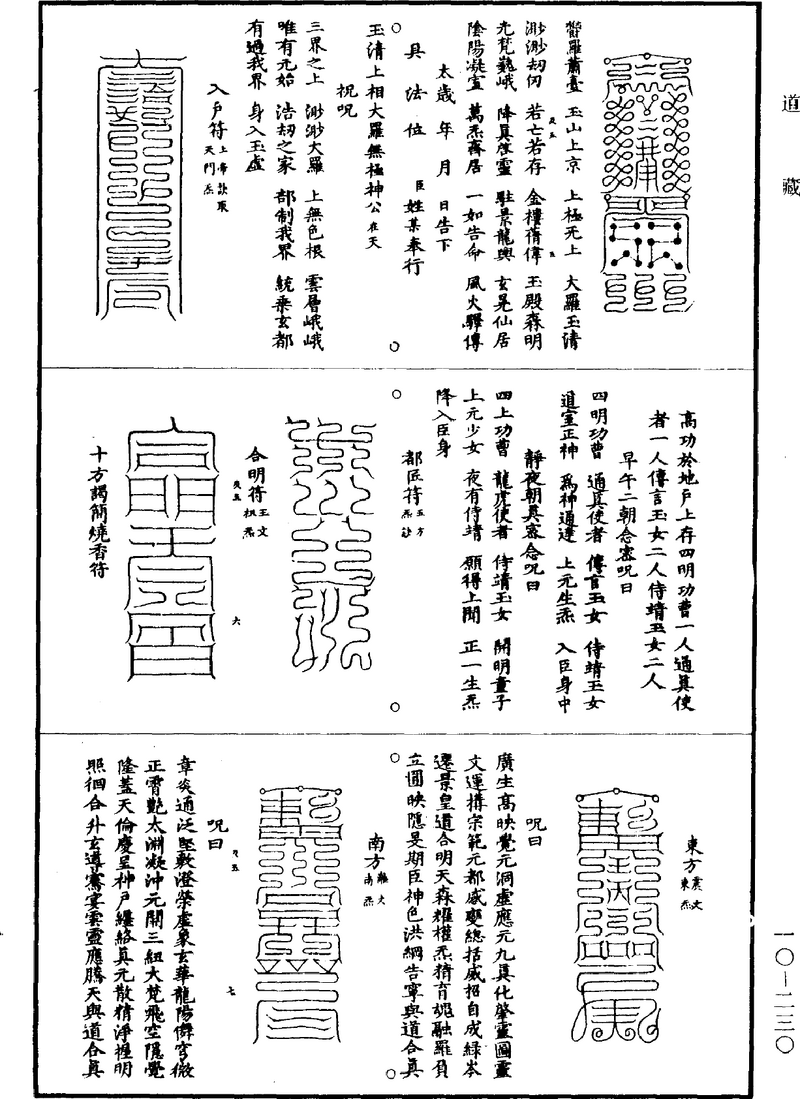 道藏
一〇—二三〇
鬱羅蕭臺 玉山上京 上極无上 大羅玉清
渺渺劫仞 若亡若存 金樓蒨偉 玉殿森明
光梵巍峨 降真啓靈 駐景龍輿 玄冕仙居
陰陽凝室 萬炁齊居 一如告命 風火驛傳
太歲 年 月 日告下
具法位 臣姓某奉行
玉清上相大羅無極神公在天
祝呪
三界之上 渺渺大羅 上無色根 雲層峨峨
唯有元始 浩劫之家 部制我界 統乘玄都
有過我界 身入玉虛
入戶符 上帝訣取天門炁
高功於地戶上存四明功曹一人通真使
者一人傳言玉女二人侍靖玉女二人
早午二朝念密呪曰
四明功曹 通真使者 傳言玉女 侍靖玉女
道室正神 爲神通達 上元生炁 入臣身中
靜夜朝真密念呪曰
四上功曹 龍虎使者 侍靖玉女 開明童子
上元少女 夜有侍靖 願得上聞 正一生炁
降入臣身
都匠符 五方炁訣
合明符 玉文 炁
六
十方謁簡燒香符
東方 震文 東炁
呪曰
廣生高映覺元洞虛應元九真化肇靈圖靈
文運構宗範元都感變總括威招自成綠岑
遷景皇道合明天森耀權炁精育魂融羅負
立圓映隱旻期臣神色洪綱告寧與道合真
南方 離文 南炁
呪曰
七
章炎通泛堅敷澄榮虛象玄華龍陽儛穹微
正霄艷太淵凝沖元開三紐大梵飛空隱覺
隆蓋天倫慶呈神戶纏絡真元散精淨捏明
照徊合升玄導騫宴雲靈應騰天與道合真